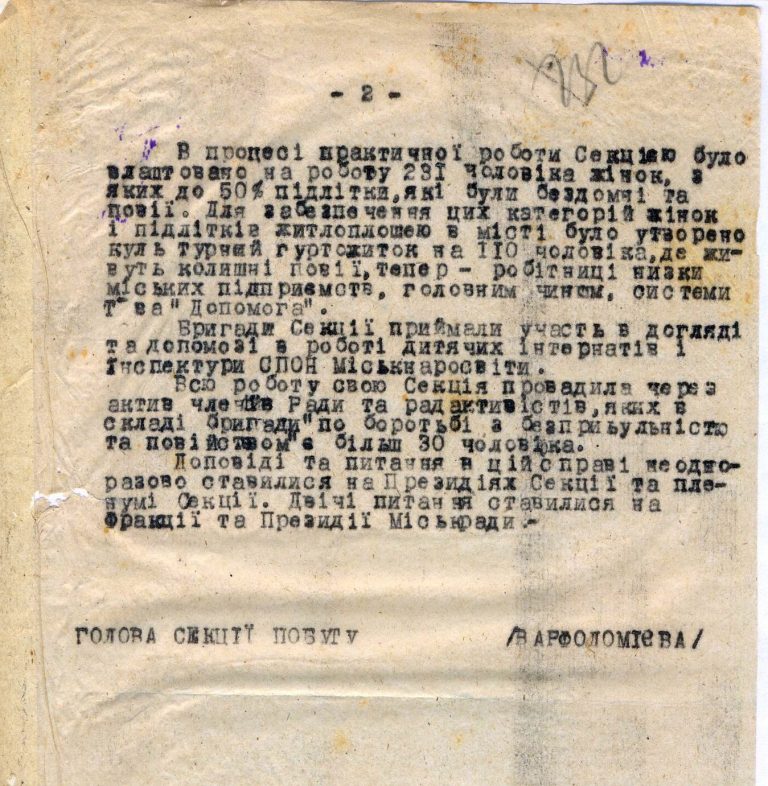 232
- 2 -
В процесі практичної роботи Секцією було
влаштовано на роботу 231 чоловіка жінок, з
яких до 50% підлітки,які були бездомні та
повії. Для забезпечення цих категорій жінок
і підлітків житлоплошею в місті було утворено
культурний гуртожиток на 110 чоловіка,де жи-
вуть колишні повії,тепер - робітниці низки
міських підприємств, головним чином, системи
Т-ва "Допомога".
Бригади Секції приймали участь в догляді
та допомозі в роботі дитячих інтернатів і
Інспектури СПОН Міськнаросвіти.
Всю роботу свою Секція провадила через
актив членів Ради та радактивістів,яких в
складі бригади "по боротьбі з безпритульністю
та повійством" є більш 30 чоловіка.
Доповіді та питання в цій справі неодно-
разово ставилися на Президіях Секції та пле-
нумі Секції. Двічі питання ставилися на
Фракції та Президії Міськради.-
ГОЛОВА СЕКЦІЇ ПОБУТУ /ВАРФОЛОМІЄВА/